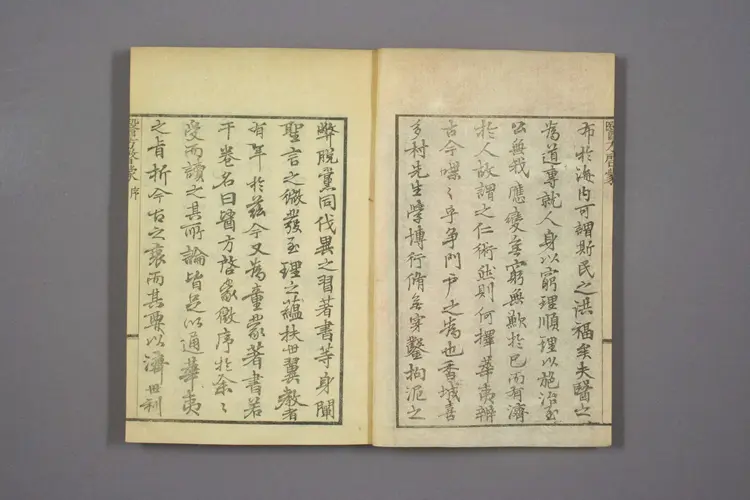 布於海内可謂斯民之洪福矣夫醫之
為道專就人身以窮理順理以施治至
公無我應變無窮無欺於己而有濟
於人故謂之仁術然則何擇華夷辨
古今喋々乎爭門戸之為也香城喜
多村先生學博行脩無穿鑿拘泥之
弊脱黨同伐異之習著書等身闡
聖言之微發至理之蘊扶世翼教者
有年於茲今又為童蒙著書若
干卷名曰醫方啓蒙徴序於余々
受而讀之其所論皆足以通華夷
之肯折今古之衷而其要以濟世利
醫方啓蒙
醫方啓蒙 序